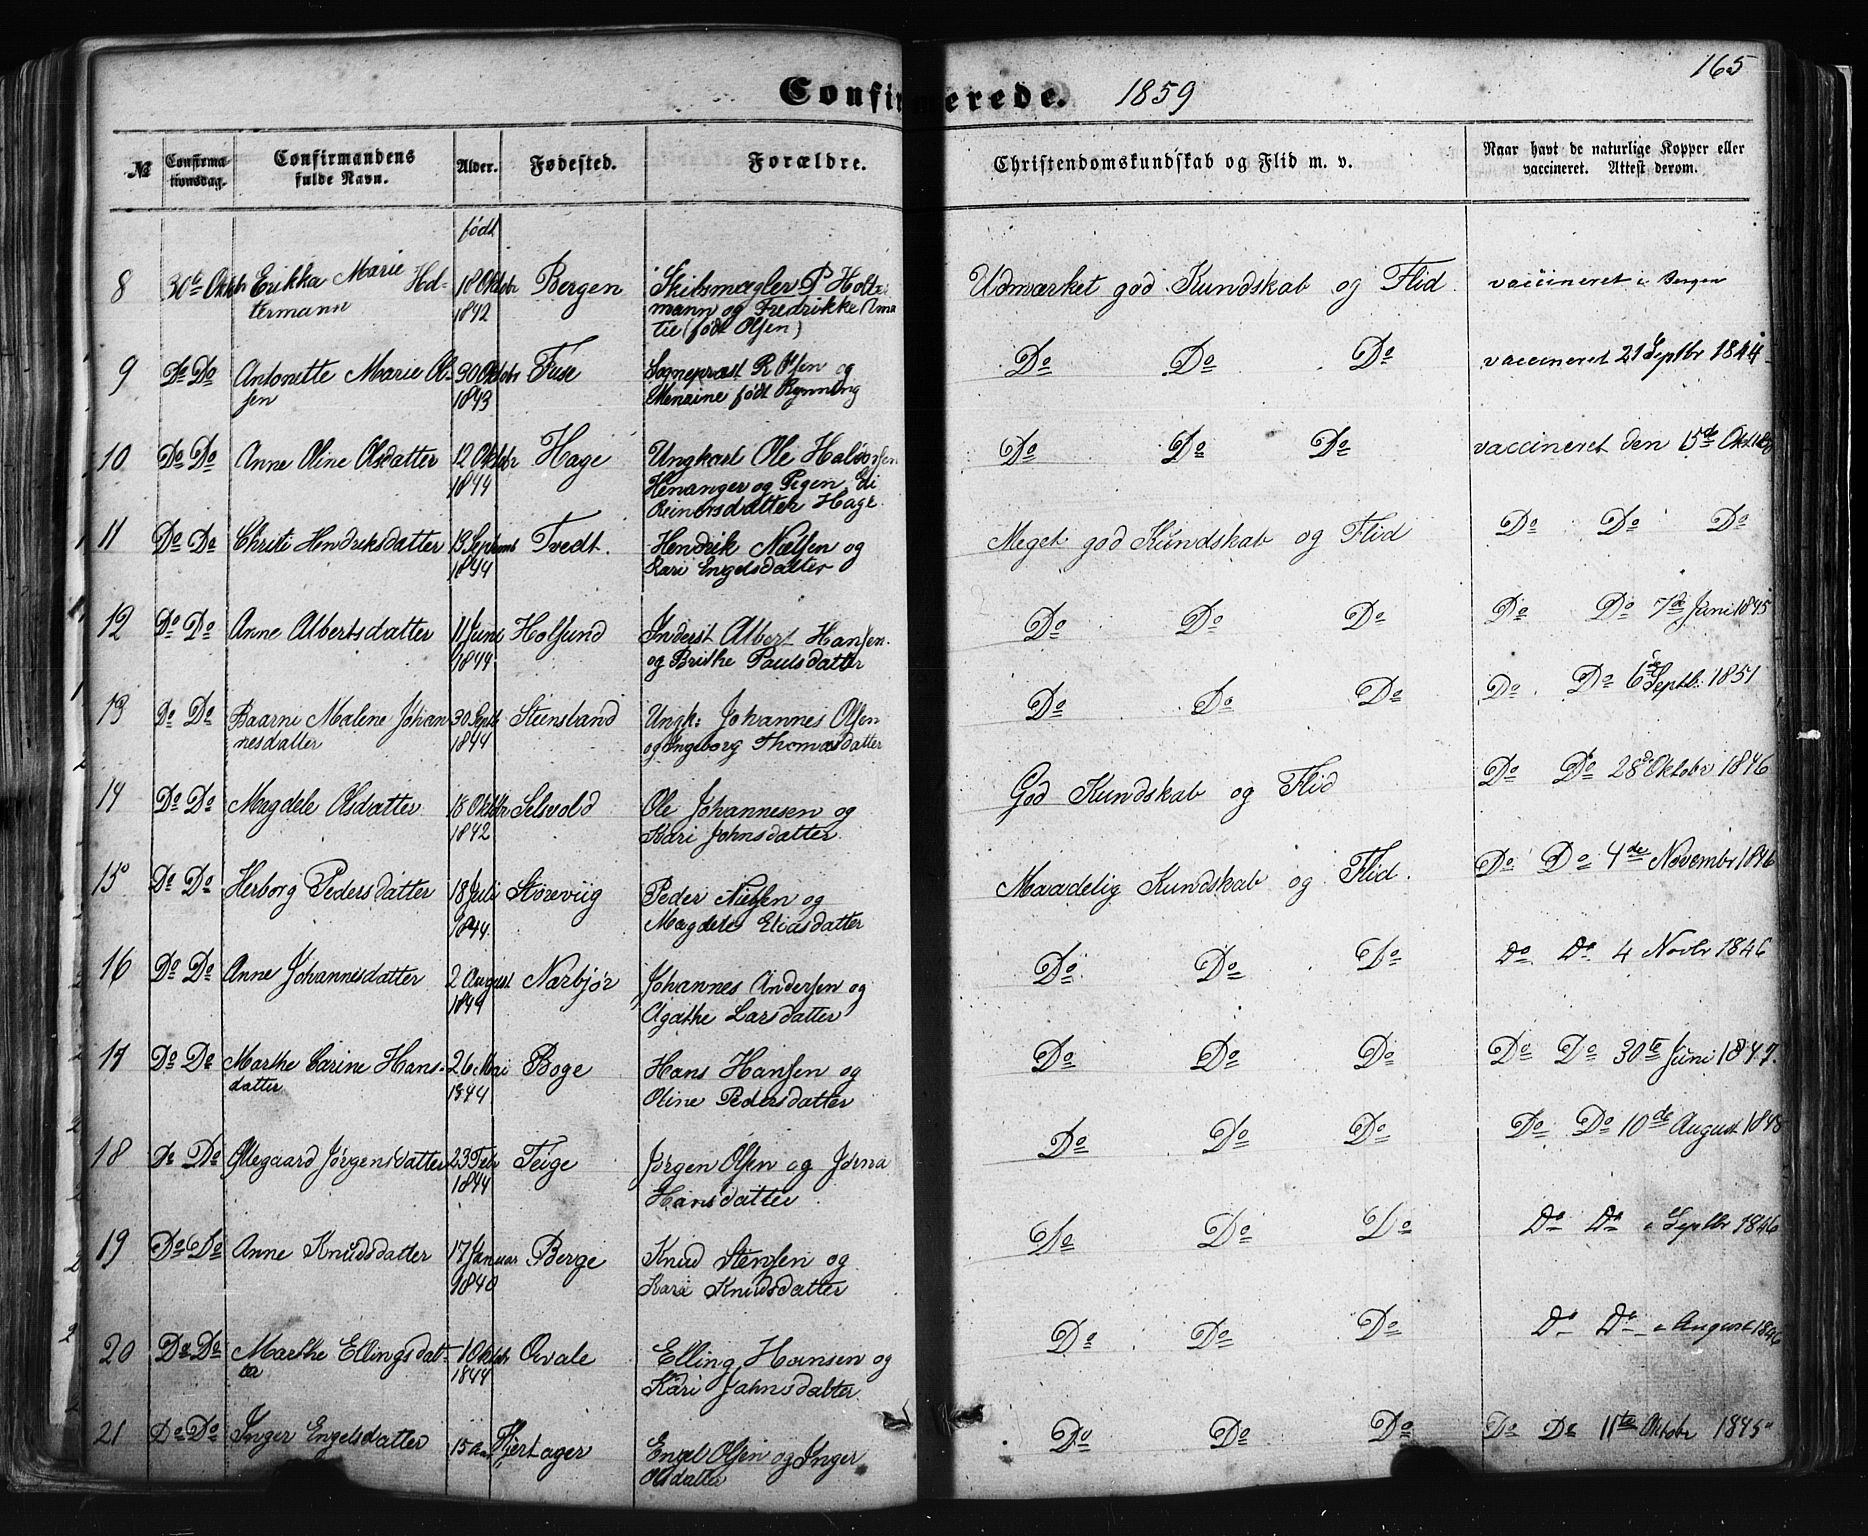 165
Confirmerede. 1859
№ Confirma-tionsdag. Confirmandens fulde Navn. Alder. Fødested. Forældre. Christendomskundskab og Flid m. v. Naar havt de naturlige Kopper eller vaccineret. Attest derom.
født
8 30te Oktbr Erikka Marie Hol- 18 Oktobr Bergen Skibsmægler P Holter- Udmærket god Kundskab og Flid vaccineret i Bergen
termann 1842 mann og Fredrikke Ama
tie (født Olsen)
9 Do Do Antonette Marie Ol- 30 Oktobr Fuse Sognepræst R Olsen og Do Do Do vaccineret 21 Septbr 1844
sen 1843 født Rynning
10 Do Do Anne Oline Olsdatter 12 Oktobr Hage Ungkarl Ole Halvorsen Do Do Do vaccineret den 15de Okt
1844 Henanger og Pigen
Reinersdatter Hage
11 Do Do Christi Hendriksdatter 13 Septemb Tvedt. Hendrik Nielsen og Meget god Kundskab og Flid Do Do Do
1844 Kari Engelsdatter
12 Do Do Anne Albertsdatter 11 Juni Holsund Inderst Albert Hansen Do Do Do Do Do 7de Juni 1845
1844 og Brithe Paulsdatter
13 Do Do Baarni Malene Johan 30 Septb Steinsland Ungk: Johannes Olsen Do Do Do Do Do 6de Septb. 1851
nesdatter 1844 og Ingeborg Thomasdatter
14 Do Do Magdele Olsdatter 18 Oktobr Selsvold Ole Johannesen og God Kundskab og Flid Do Do 28de Oktobr 1846
1842 Kari Johnsdatter
15 Do Do Herborg Pedersdatter 18 Juli Støreviig Peder Nielsen og Maadelig Kundskab og Flid. Do Do 4de Novembr 1846
1844 Magdele Eliasdatter
16 Do Do Anne Johannesdatter 2 August Nærbjør Johannes Andersen og Do Do Do Do Do 4 Novbr 1846
1844 Agathe Larsdatter
17 Do Do Marthe Carine Hans- 26 Mai Boge Hans Hansen og Do Do Do Do Do 30te Juni 1847.
datter 1844 Oline Pedersdatter
18 Do Do Ødegaard Jørgensdatter 23 Febr Teige Jørgen Olsen og Jorna Do Do Do Do Do 10de August 1848
1844 Hansdatter
19 Do Do Anne Knudsdatter 17 Januar Berge Knud Stensen og Do Do Do Do Do i Septbr 1846
1840 Kari Knudsdatter
20 Do Do Marthe Ellingsdat- 1 Oktobr Øvale Elling Hansen og Do Do Do Do Do i August 1846
ter 1844 Kari Jahnsdatter
21 Do Do Inger Engelsdatter 15 Aar Hjertager Engel Olsen og Inger Do Do Do Do Do 11te Oktobr 1845
Olsdatter